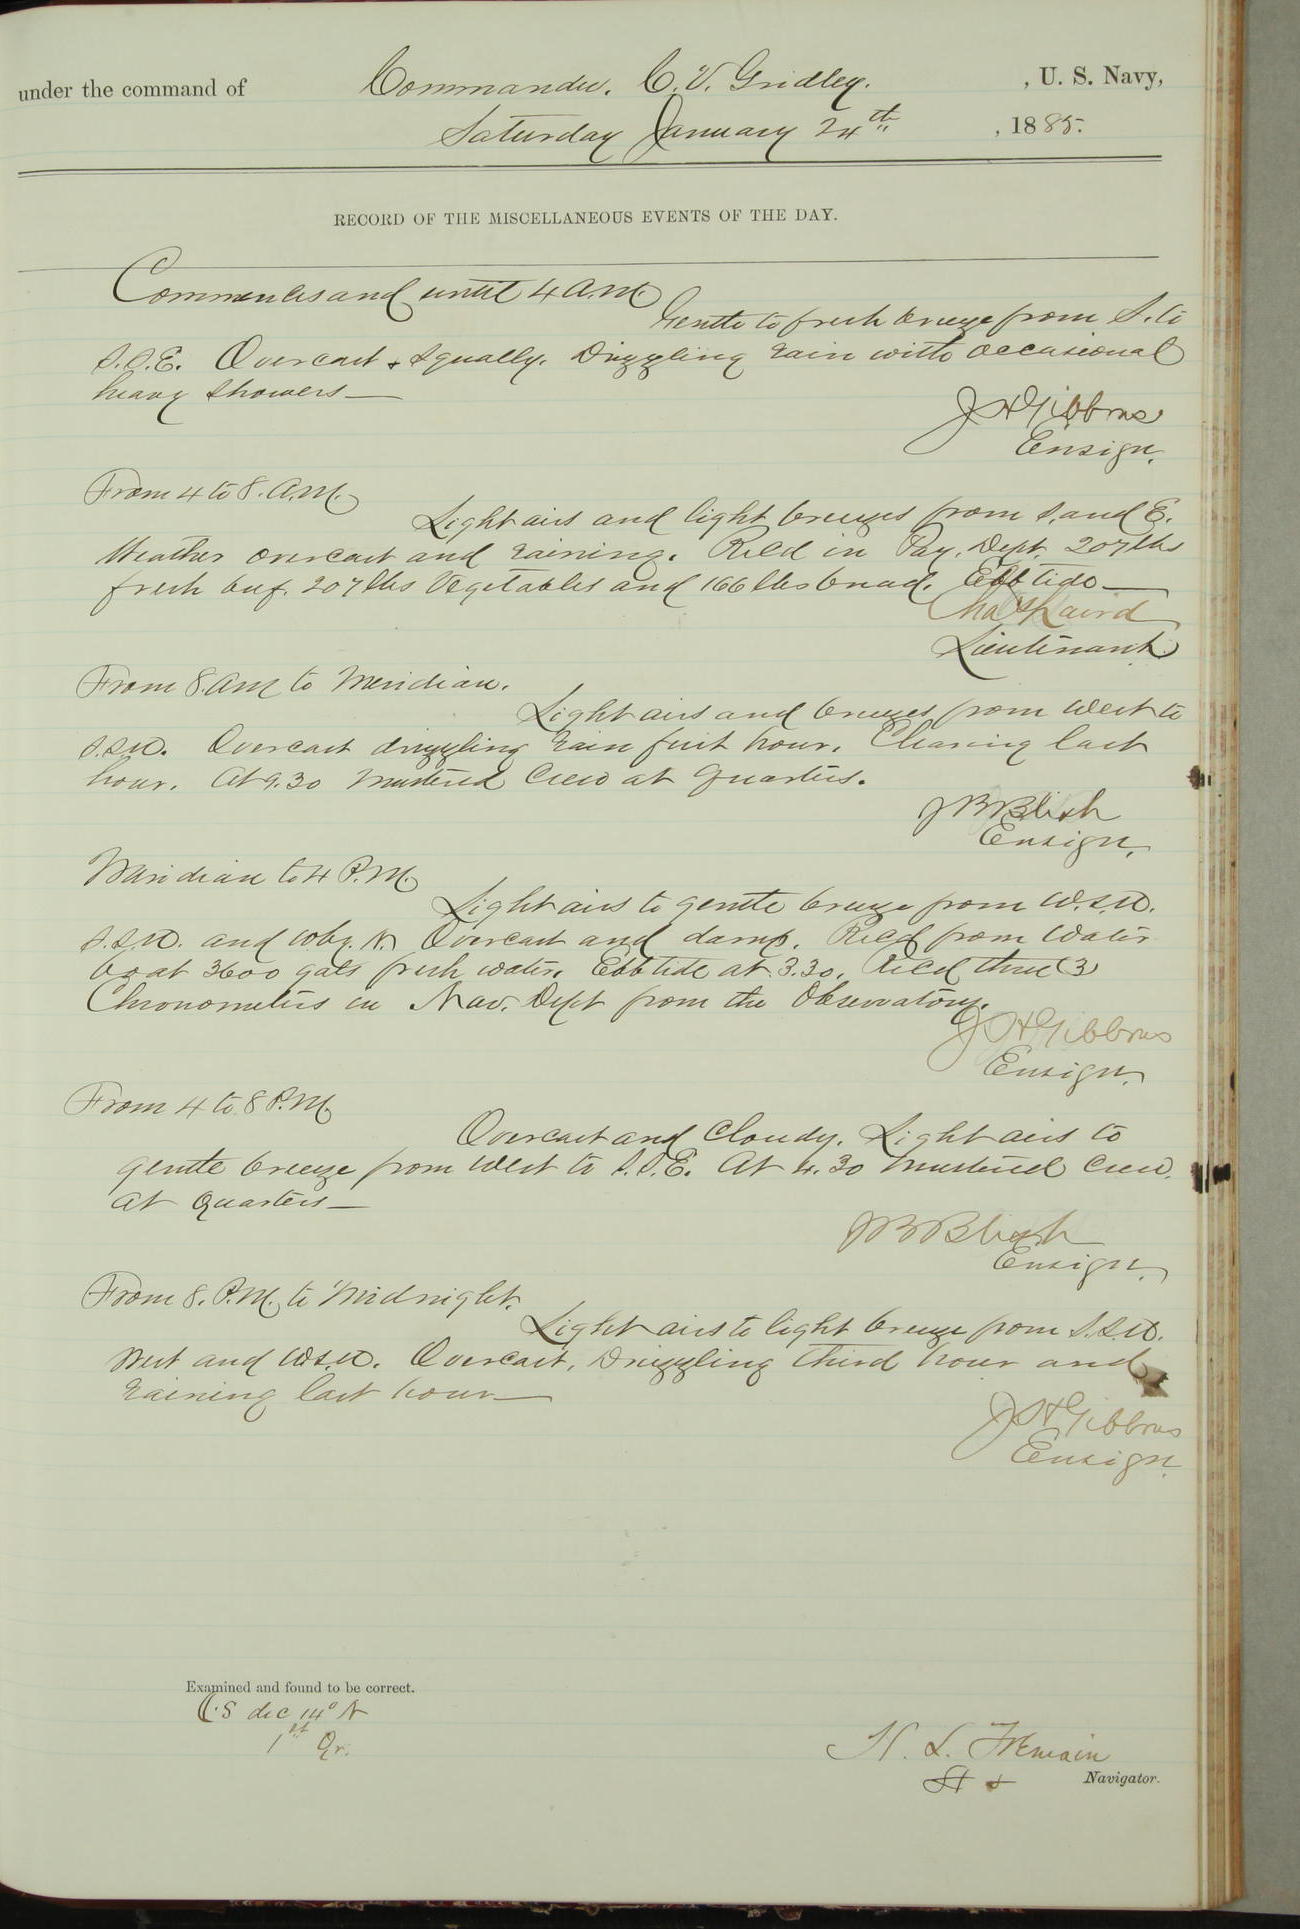 under the command of Commander. C. V. Gridley. , U. S. Navy,
Saturday January 24th , 1885.
RECORD OF THE MISCELLANEOUS EVENTS OF THE DAY.
Commences and until 4 A.M.
Gentle to fresh breeze from S. to
S.S.E. Overcast & squally. Drizzling rain with occasional
heavy showers—
J H Gibbons
Ensign.
From 4 to 8. A.M.
Light airs and light breezes from S. and E.
Weather overcast and raining. Rec'd in Pay. Dept. 207 lbs
fresh beef. 207 lbs Vegetables and 166 lbs bread. Ebb tide—
Chas Laird
Lieutenant
From 8. AM to Meridian.
Light airs and breezes from West to
S.S.W. Overcast drizzling rain first hour. Clearing last
hour. At 9.30 Mustered Crew at Quarters.
J B Blish
Ensign.
Meridian to 4 P.M.
Light airs to gentle breeze from W.S.W.
S.S.W. and W by. N. Overcast and damp. Rec'd from Water
boat 3600 gals fresh water. Ebb tide at 3.30. Rec'd three (3)
Chronometers in Nav. Dept from the Observatory.
J H Gibbons
Ensign.
From 4 to 8 P.M.
Overcast and Cloudy. Light airs to
gentle breeze from West to S.S.E. At 4.30 Mustered Crew
at Quarters—
J B Blish
Ensign.
From 8. P.M. to Midnight.
Light airs to light breeze from S.S.W.
West and W.S.W. Overcast, Drizzling third hour and
raining last hour—
J H Gibbons
Ensign.
Examined and found to be correct.
dec 14° N
1st Qr.
H. L. Tremain
Navigator.